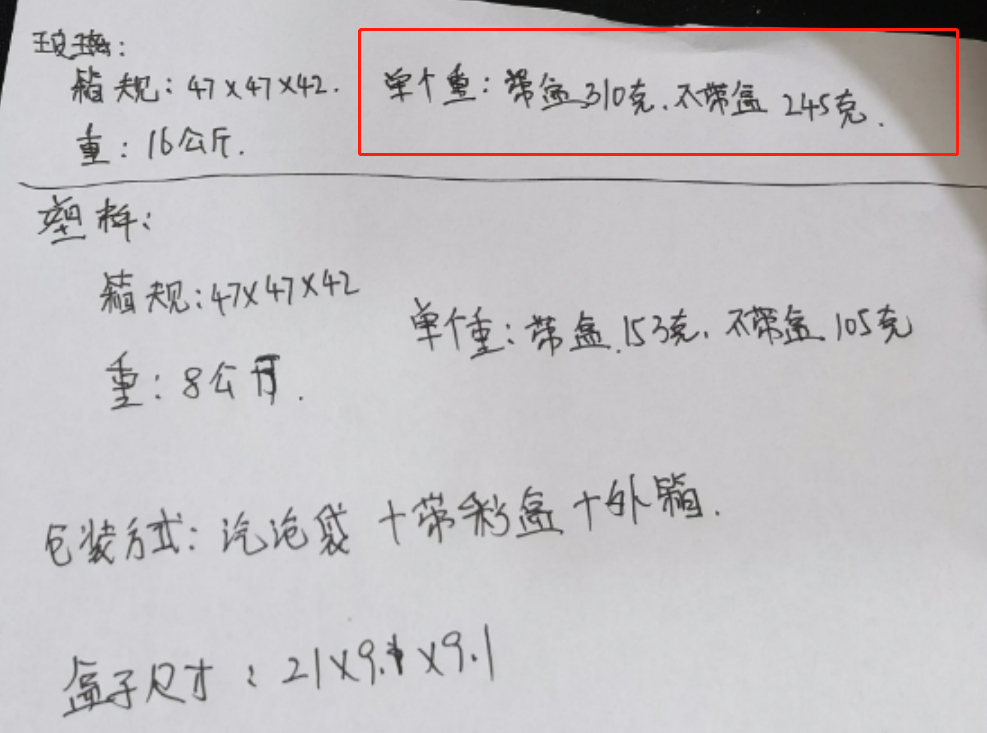 玻璃:
箱规:47×47×42. 单个重:带盒310克.不带盒 245克.
重:16公斤.
塑料:
箱规:47×47×42
单个重:带盒.153克.不带盒.105克
重:8公斤.
包装方式:泡泡袋+带彩盒+外箱.
盒子尺寸:21×9.1×9.1